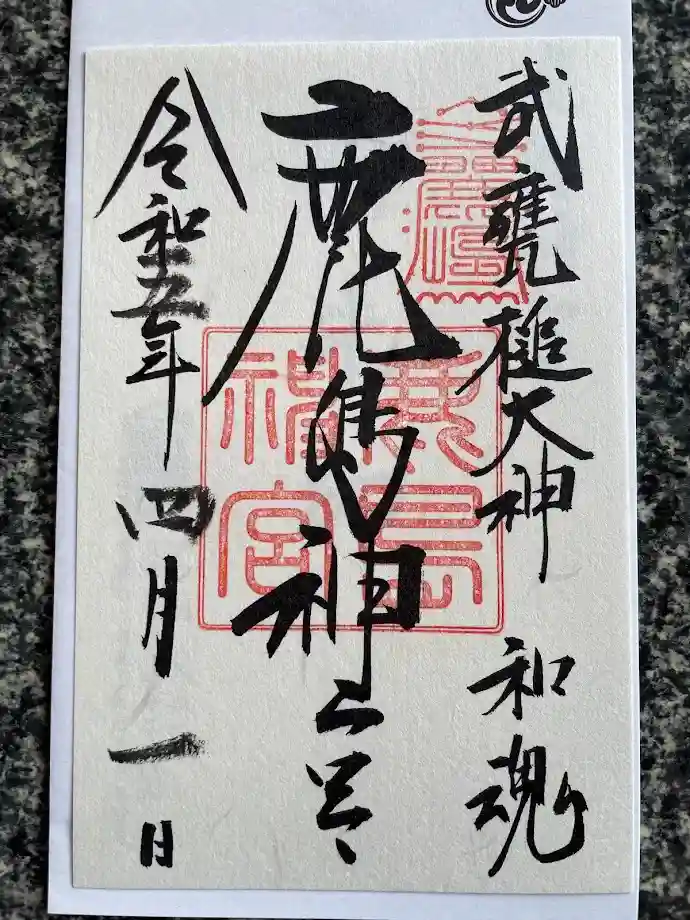 武甕槌大神 和魂
鹿島神宮
鹿島
神宮
令和五年四月一日